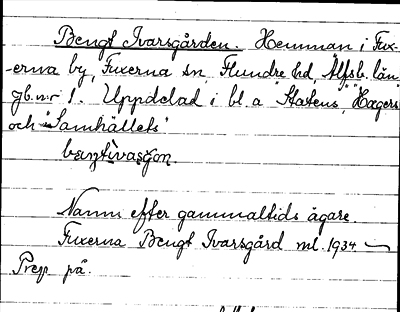 Bengt Ivarsgården. Hemman i Fux-
-erna by, Fuxerna sn, Flundre hd, Älfsb. län
gb.n:r 1. Uppdelad i bl.a "Statens", "Hagers"
och "Samhällets"
Namn efter gammaltids ägare.
Fuxerna Bengt Ivarsgård ml. 1934
Prep på.